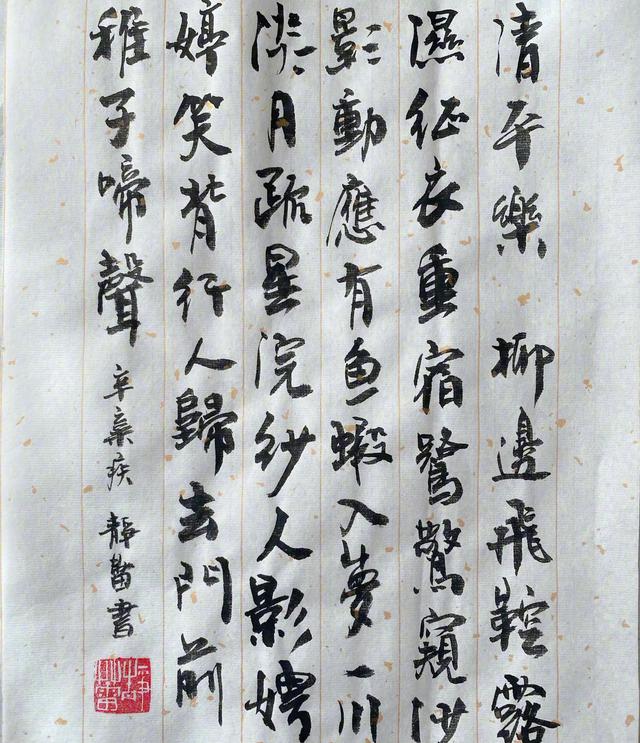 清平樂 柳邊飛鞚露
濕征衣重宿鷺驚窺沙
影動應有魚蝦入夢一川
淡月疏星浣紗人影娉
婷笑背行人歸去門前
稚子啼聲 辛棄疾 靜 書